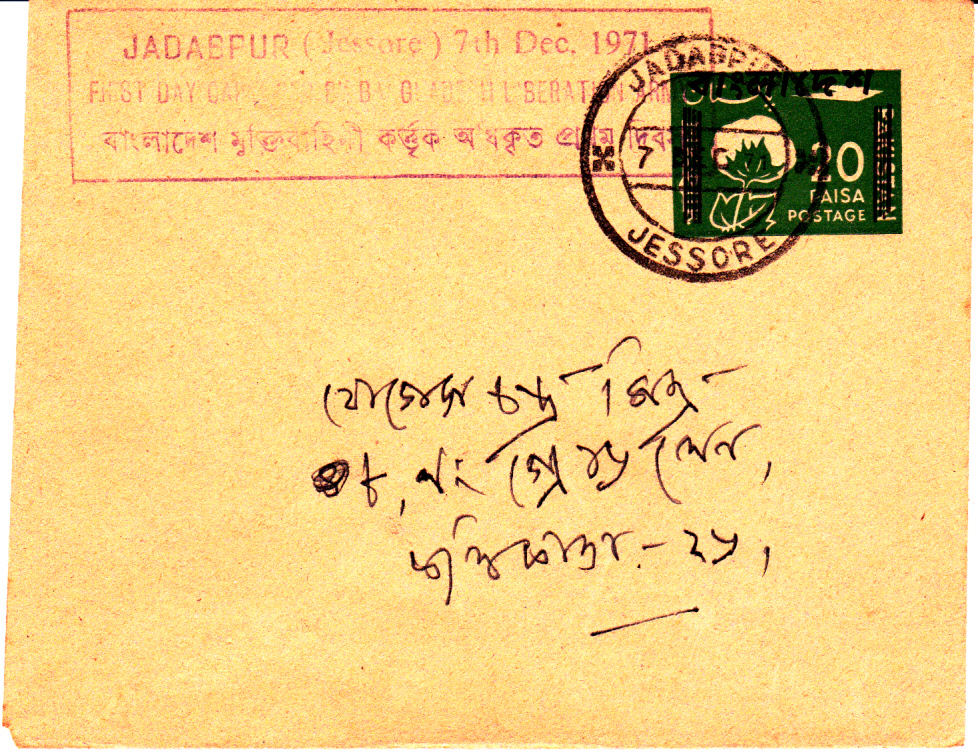 JADABPUR (Jessore) 7th Dec. 1971
FIRST DAY CAPTURED BY BANGLADESH LIBERATION ARMY
বাংলাদেশ মুক্তিবাহিনী কর্ত্তৃক অধিকৃত প্রথম দিবস
JADABPUR
বাংলাদেশ
7 DEC 71
20
PAISA
POSTAGE
PAKISTAN
JESSORE
যোগেন্দ্র চন্দ্র মিত্র
৮, নং
লেন,
কলিকাতা - ২৬,